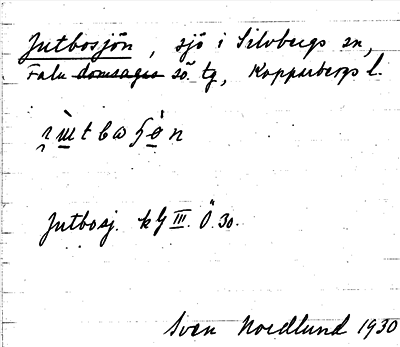 Jutbosjön, sjö i Silvbergs sn,
Falu domsagas sö. tg, Kopparbergs l.
Jutbosj. k bl III. Ö. 30.
Sven Nordlund 1930